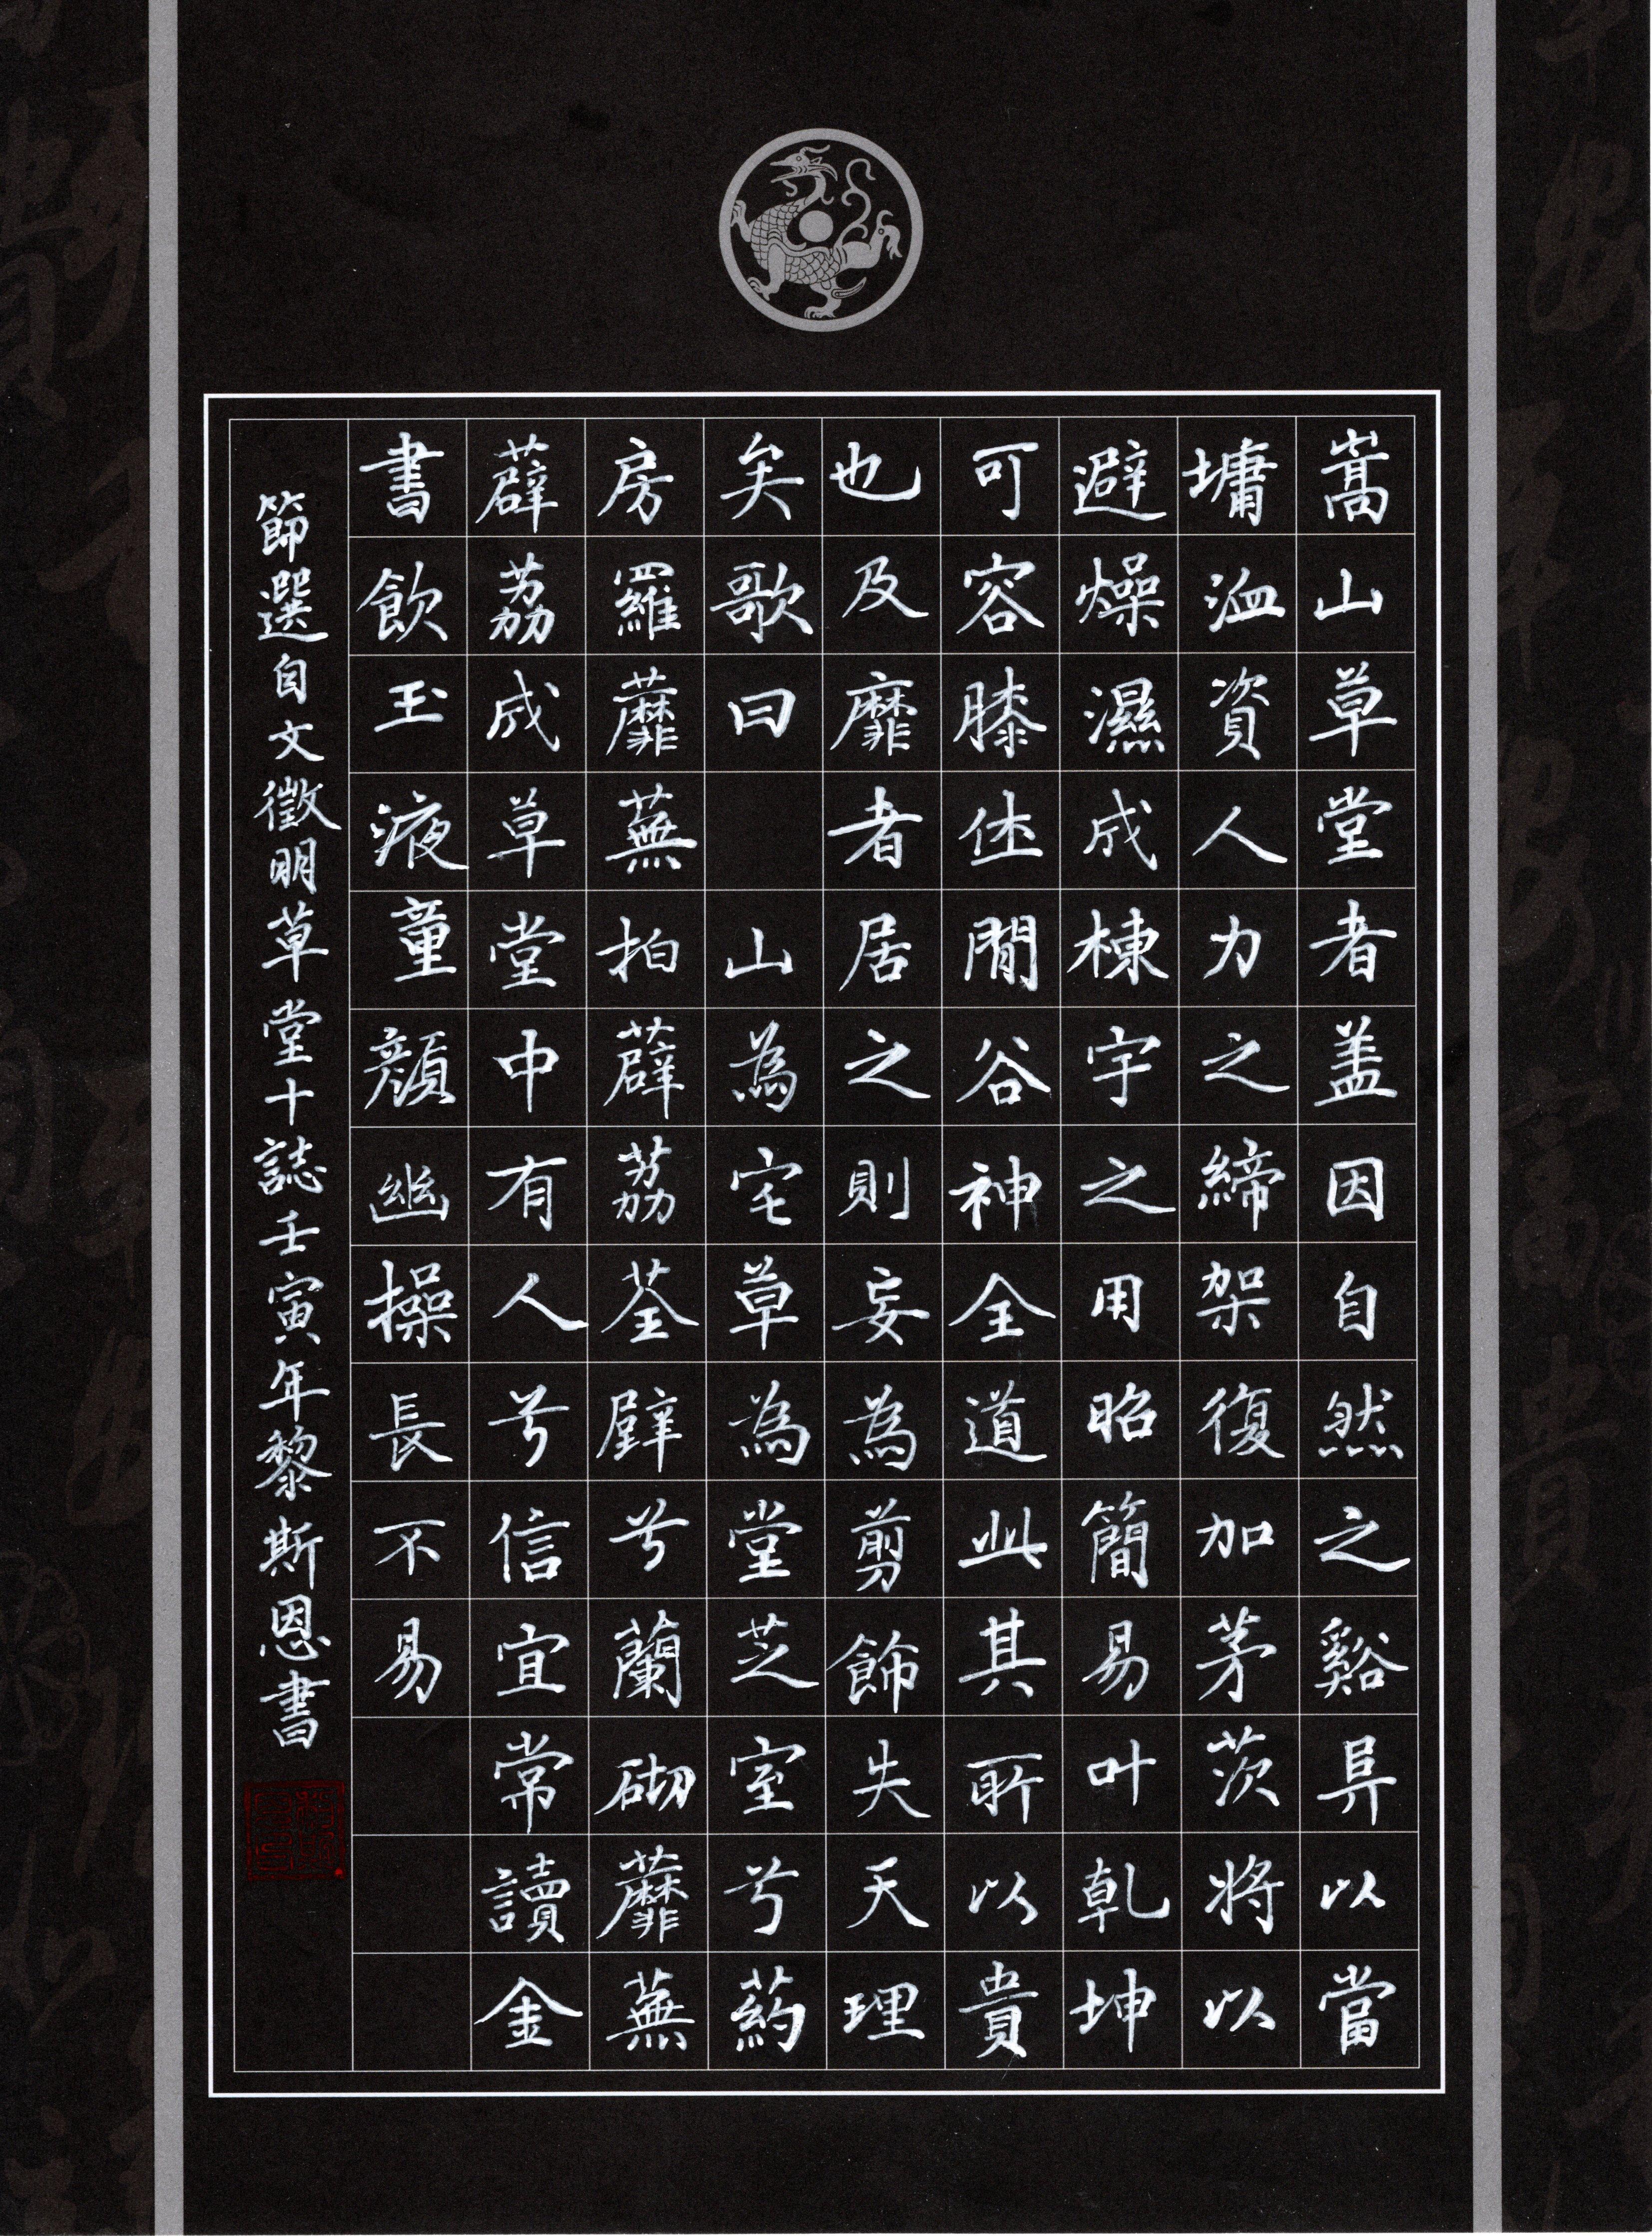 嵩山草堂者盖因自然之谿阜以當
墉洫資人力之締架復加茅茨將以
避燥濕成棟宇之用昭簡易叶乾坤
可容膝休閒谷神全道此其所以貴
也及靡者居之則妄為剪飾失天理
矣歌曰 山為宅草為堂芝室兮葯
房羅蘼蕪拍薜荔荃壁兮蘭砌蘼蕪
薜荔成草堂中有人兮信宜常讀金
書飲玉液童顏幽操長不易
節選自文徵明草堂十誌壬寅年黎斯恩書